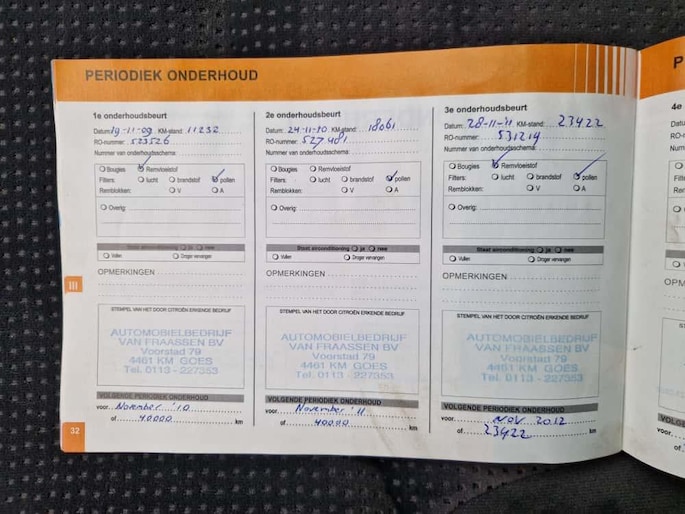 PERIODIEK ONDERHOUD
1e onderhoudsbeurt
Datum: 19-11-09 KM-stand: 11232
RO-nummer: 523526
Nummer van onderhoudsschema:
Bougies Remvloeistof
Filters: lucht brandstof pollen
Remblokken: V A
Overig:
Staat airconditioning ja nee
Vullen Droger vervangen
OPMERKINGEN
STEMPEL VAN HET DOOR CITROËN ERKENDE BEDRIJF
AUTOMOBIELBEDRIJF
VAN FRAASSEN BV
Voorstad 79
4461 KM GOES
Tel. 0113 - 227353
VOLGENDE PERIODIEK ONDERHOUD
voor November '10
of 40000 km
2e onderhoudsbeurt
Datum: 24-11-10 KM-stand: 18061
RO-nummer: 527481
Nummer van onderhoudsschema:
Bougies Remvloeistof
Filters: lucht brandstof pollen
Remblokken: V A
Overig:
Staat airconditioning ja nee
Vullen Droger vervangen
OPMERKINGEN
STEMPEL VAN HET DOOR CITROËN ERKENDE BEDRIJF
AUTOMOBIELBEDRIJF
VAN FRAASSEN BV
Voorstad 79
4461 KM GOES
Tel. 0113 - 227353
VOLGENDE PERIODIEK ONDERHOUD
voor November '11
of 40000 km
3e onderhoudsbeurt
Datum: 28-11-'11 KM-stand: 23422
RO-nummer: 531214
Nummer van onderhoudsschema:
Bougies Remvloeistof
Filters: lucht brandstof pollen
Remblokken: V A
Overig:
Staat airconditioning ja nee
Vullen Droger vervangen
OPMERKINGEN
STEMPEL VAN HET DOOR CITROËN ERKENDE BEDRIJF
AUTOMOBIELBEDRIJF
VAN FRAASSEN BV
Voorstad 79
4461 KM GOES
Tel. 0113 - 227353
VOLGENDE PERIODIEK ONDERHOUD
voor Nov 2012
of 23422 km
III
32
P
4e